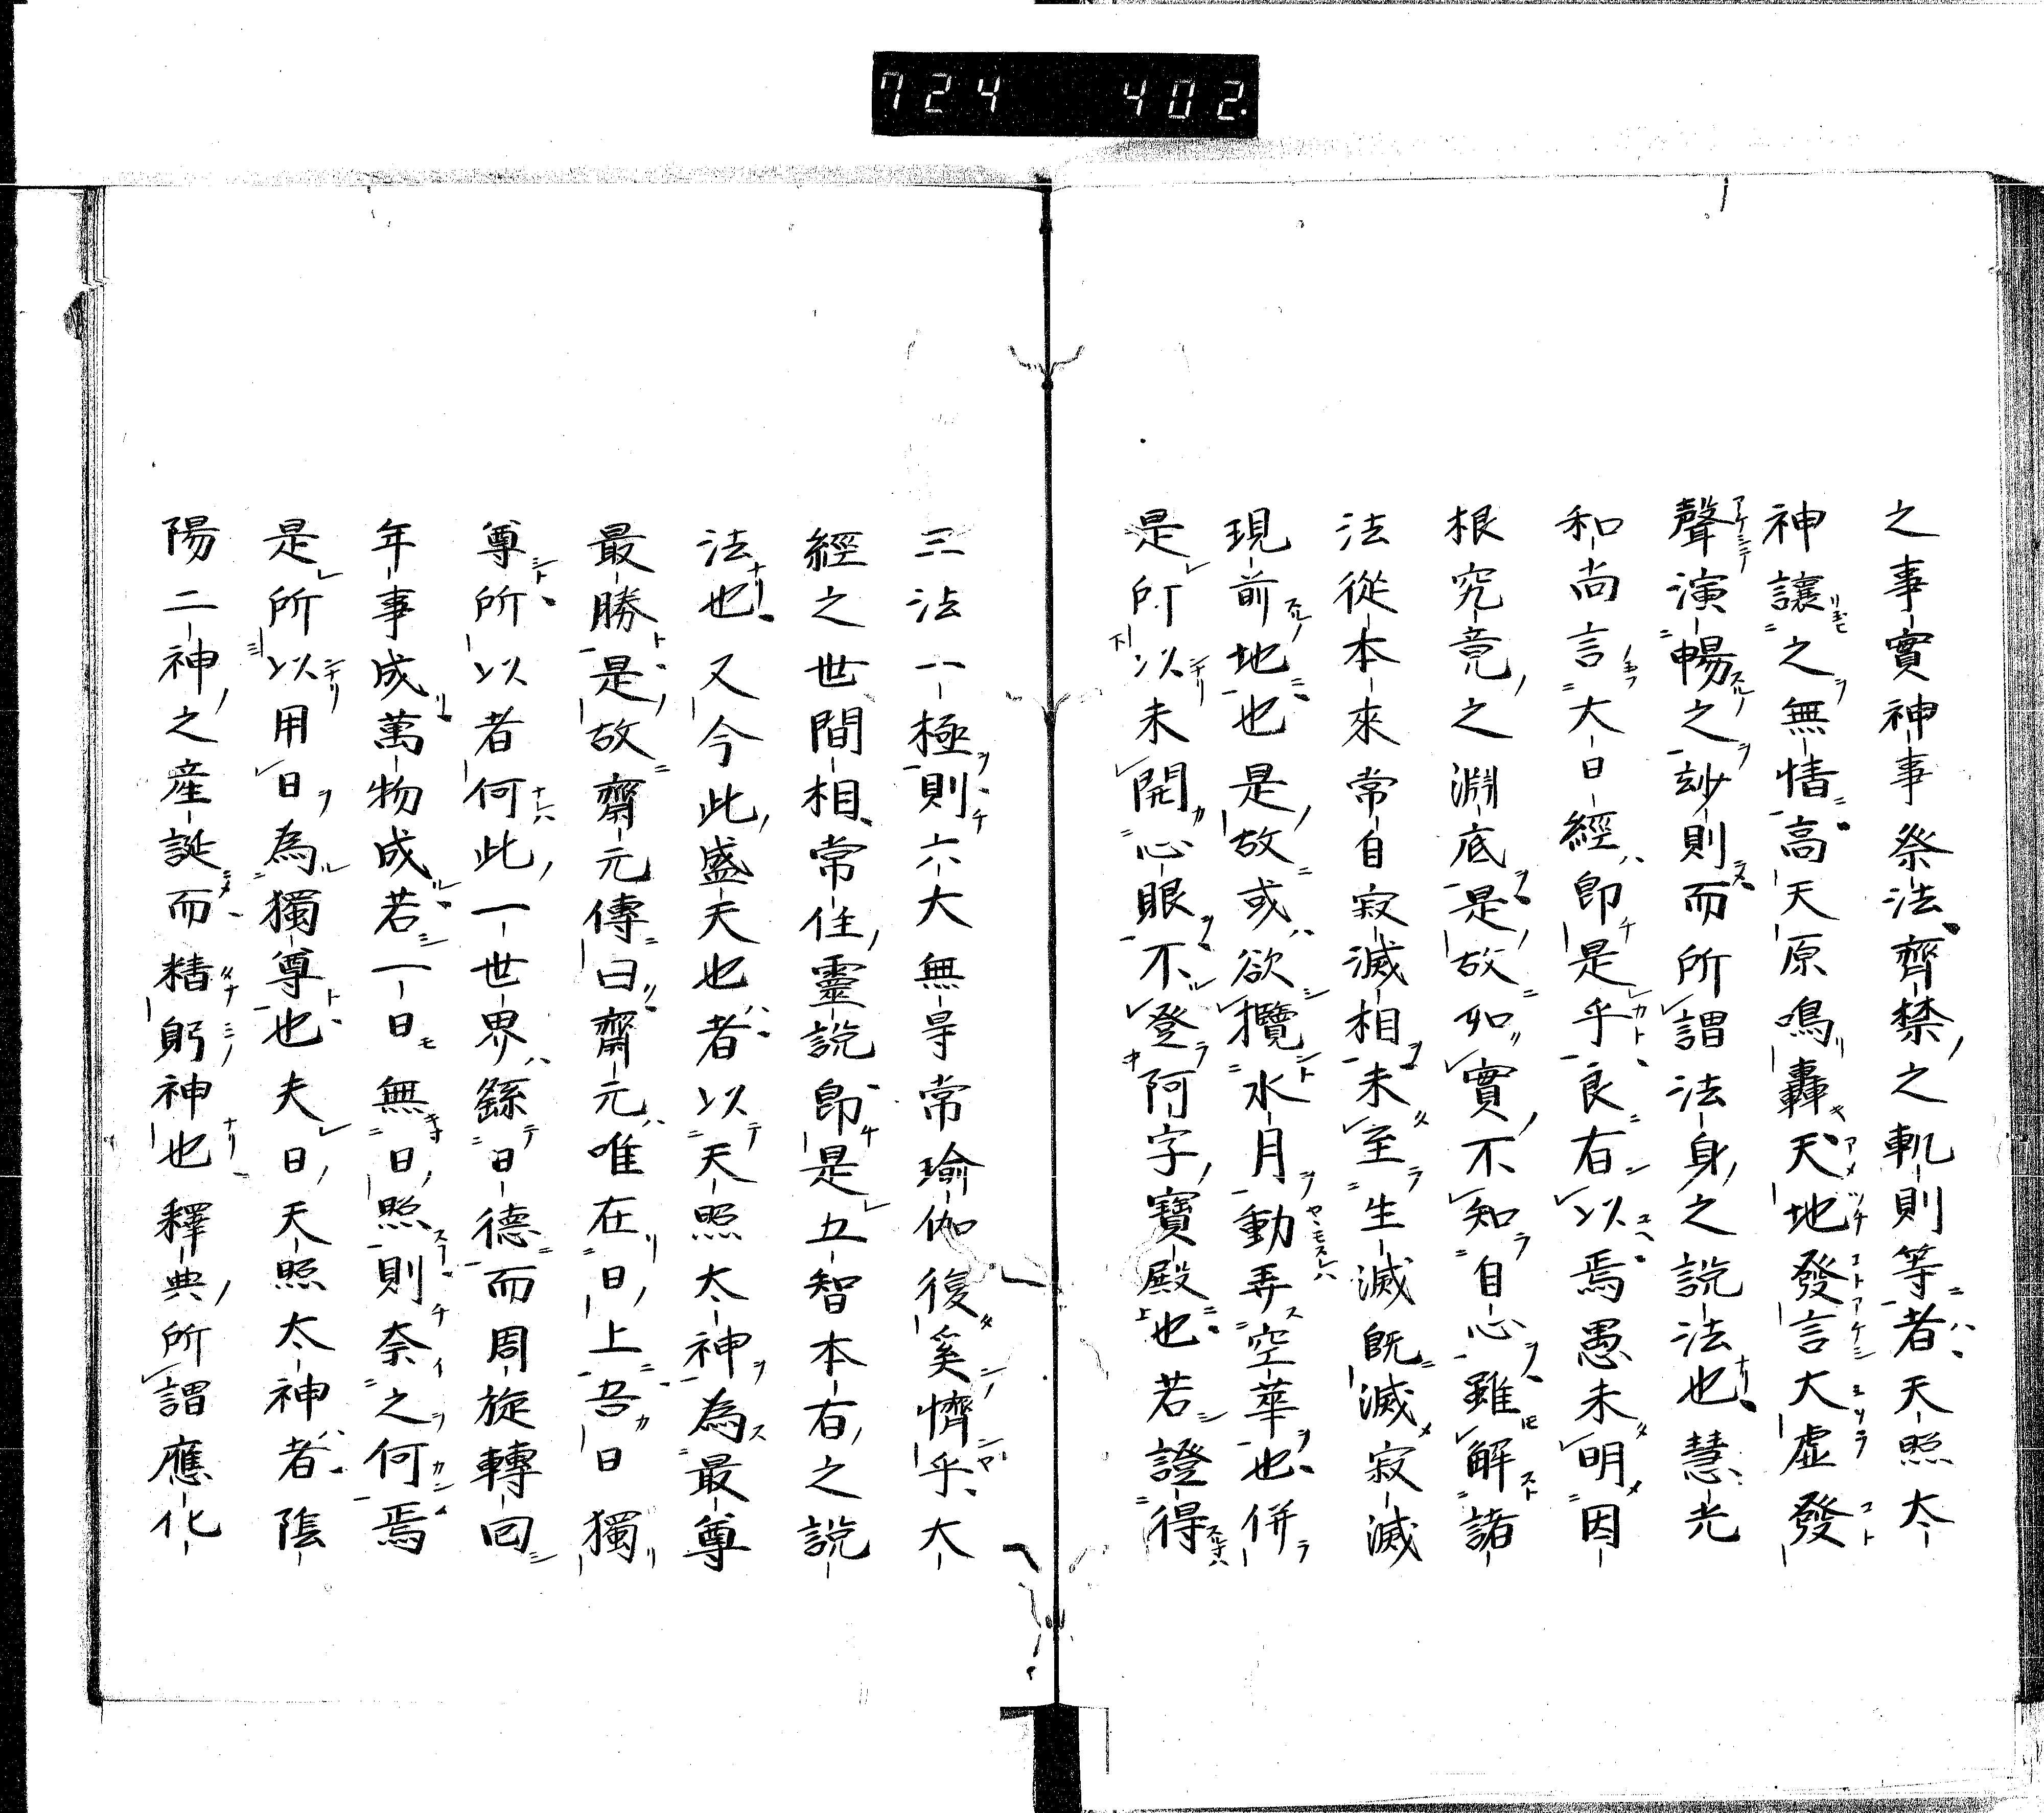 724 402.
之事實神事祭法齊禁之軌則等者天照太
神讓之無情高天原鳴轟天地發言大虛發
聲演暢之玅則而所謂法身之說法也慧光
和尚言大日經即是乎良有以焉愚未明因
根究竟之淵底是故如實不知自心雖解諸
法從本來常自寂滅相未至生滅既滅寂滅
現前地也是故或欲攬水月動弄空華也併
是所以未開心眼不登阿字寶殿也若證得
三法一極則六大無㝵常瑜伽復奚懠乎大
經之世間相常住靈說即是五智本有之說
法也又今此盛天也者以天照太神為最尊
最勝是故齋元傳曰齋元唯在日上吾日獨
尊所以者何此一世界繇日德而周旋轉回
年事成萬物成若一日無日照則奈之何焉
是所以用日為獨尊也夫日天照太神者陰
陽二神之産誕而精躬神也釋典所謂應化